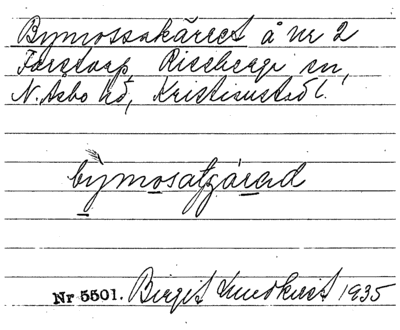 Bymossakäret å nr 2
Forstorp, Riseberga sn,
N. Åsbo hd, Kristianstad l.
bymosatjárad
Nr 5501. Birgit Lundkvist 1935